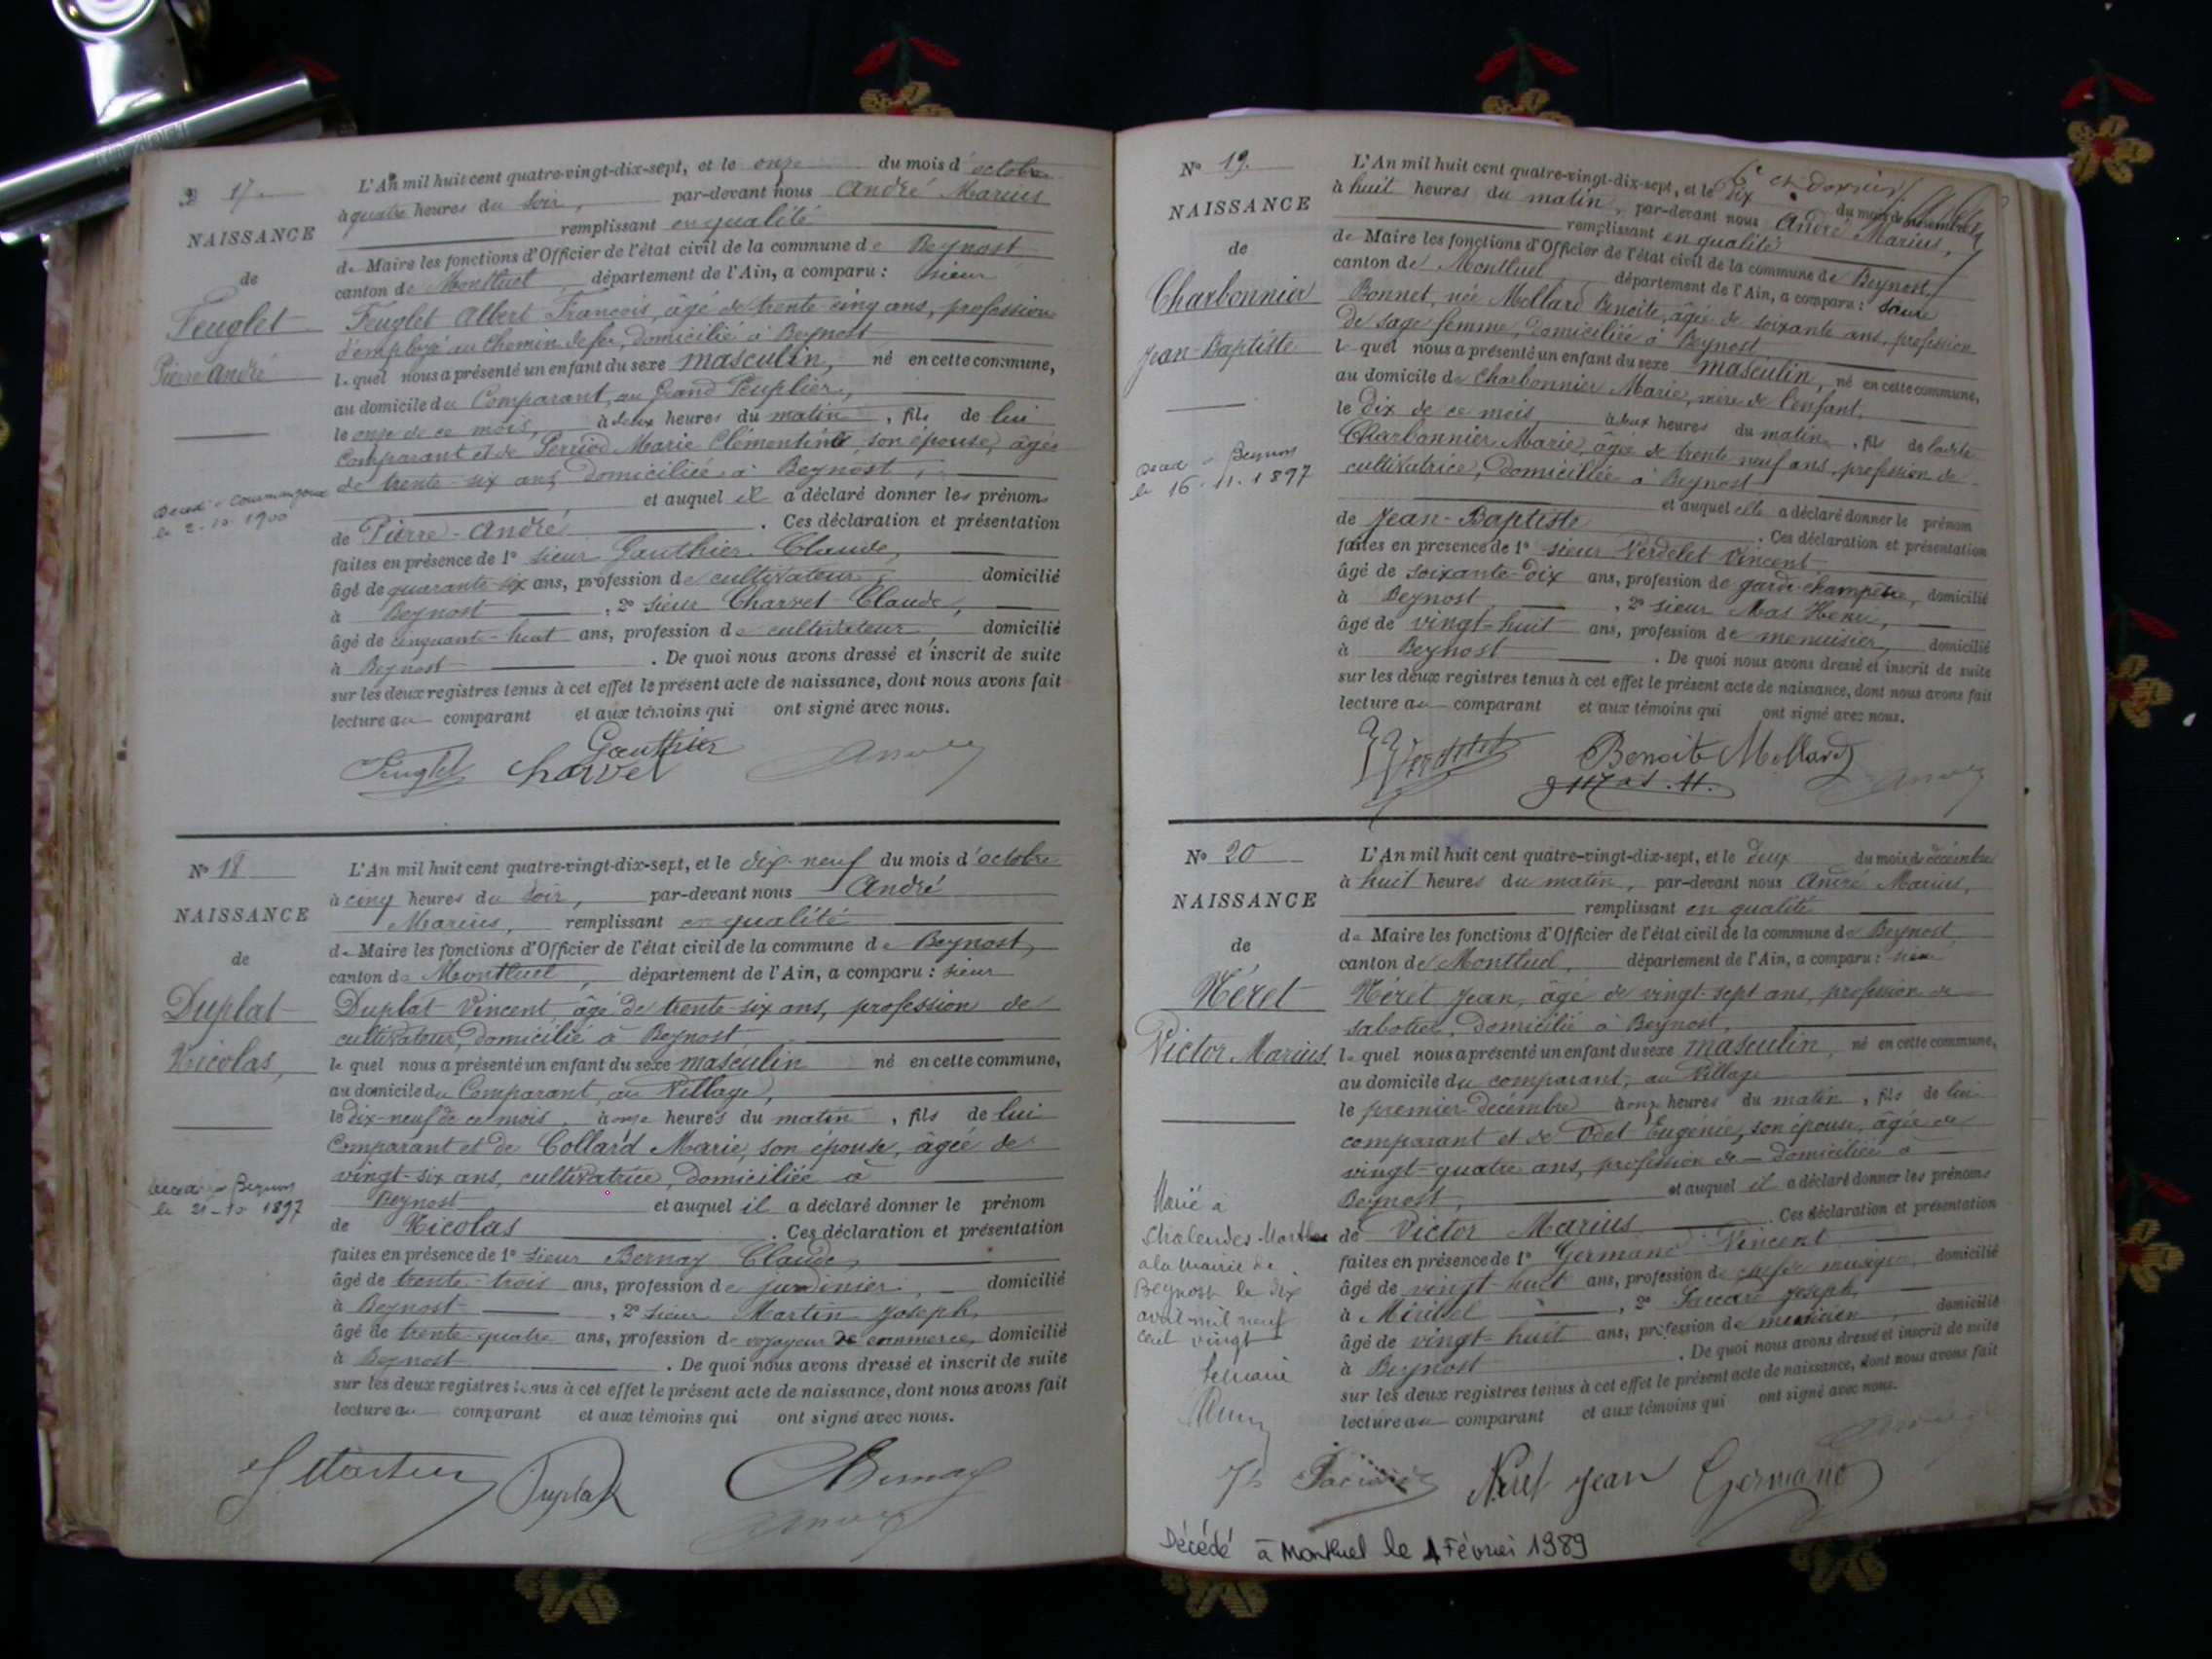 17.
NAISSANCE
de
Feuglet
Pierre André
le 2-10-1900
L'An mil huit cent quatre-vingt-dix-sept, et le onze du mois d'octobre
à quatre heures du soir, par-devant nous André Marius
remplissant en qualité
de Maire les fonctions d'Officier de l'état civil de la commune de Beynost
canton de Montluel, département de l'Ain, a comparu : sieur
Feuglet Albert François, âgé de trente-cinq ans, profession
d'employé au chemin de fer, domicilié à Beynost
lequel nous a présenté un enfant du sexe masculin, né en cette commune,
au domicile du Comparant, au Grand Peuplier,
le onze de ce mois, à deux heures du matin, fils de lui
Comparant et de Perriod Marie Clémentine, son épouse, âgée
de trente-six ans, domiciliée à Beynost,
et auquel il a déclaré donner les prénoms
de Pierre-André. Ces déclaration et présentation
faites en présence de 1° sieur Gauthier Claude,
âgé de quarante-six ans, profession de cultivateur, domicilié
à Beynost, 2° sieur Charvet Claude,
âgé de cinquante-huit ans, profession de cultivateur, domicilié
à Beynost. De quoi nous avons dressé et inscrit de suite
sur les deux registres tenus à cet effet le présent acte de naissance, dont nous avons fait
lecture au comparant et aux témoins qui ont signé avec nous.
Gauthier
Feuglet Charvet André
N° 18
NAISSANCE
de
Duplat
Nicolas,
Décédé à Beynost
le 21-10 1897
L'An mil huit cent quatre-vingt-dix-sept, et le dix-neuf du mois d'octobre
à cinq heures du soir, par-devant nous André
Marius, remplissant en qualité
de Maire les fonctions d'Officier de l'état civil de la commune de Beynost,
canton de Montluel, département de l'Ain, a comparu : sieur
Duplat Vincent, âgé de trente-six ans, profession de
cultivateur, domicilié à Beynost
lequel nous a présenté un enfant du sexe masculin né en cette commune,
au domicile du Comparant, au Village,
le dix-neuf de ce mois, à onze heures du matin, fils de lui
Comparant et de Collard Marie, son épouse, âgée de
vingt-six ans, cultivatrice, domiciliée à
Beynost et auquel il a déclaré donner le prénom
de Nicolas. Ces déclaration et présentation
faites en présence de 1° sieur Bernay Claude,
âgé de trente-trois ans, profession de jardinier, domicilié
à Beynost, 2° sieur Martin Joseph,
âgé de trente-quatre ans, profession de voyageur de commerce, domicilié
à Beynost. De quoi nous avons dressé et inscrit de suite
sur les deux registres tenus à cet effet le présent acte de naissance, dont nous avons fait
lecture au comparant et aux témoins qui ont signé avec nous.
J Martin Duplat Bernay
André
N° 19.
NAISSANCE
de
Charbonnier
Jean-Baptiste
Décédé à Beynost
le 16.11.1897
6e et dernier
L'An mil huit cent quatre-vingt-dix-sept, et le dix du mois de novembre
à huit heures du matin, par-devant nous André Marius,
remplissant en qualité
de Maire les fonctions d'Officier de l'état civil de la commune de Beynost,
canton de Montluel, département de l'Ain, a comparu : dame
Bonnet, née Mollard Benoite, âgée de soixante ans, profession
de sage femme, domiciliée à Beynost
lequel nous a présenté un enfant du sexe masculin, né en cette commune,
au domicile de Charbonnier Marie, mère de l'enfant,
le dix de ce mois, à deux heures du matin, fils de ladite
Charbonnier Marie, âgée de trente neuf ans, profession de
cultivatrice, domiciliée à Beynost
et auquel elle a déclaré donner le prénom
de Jean-Baptiste. Ces déclaration et présentation
faites en présence de 1° sieur Verdelet Vincent
âgé de soixante-dix ans, profession de garde-champêtre, domicilié
à Beynost, 2° sieur Mas Henri,
âgé de vingt-huit ans, profession de menuisier, domicilié
à Beynost. De quoi nous avons dressé et inscrit de suite
sur les deux registres tenus à cet effet le présent acte de naissance, dont nous avons fait
lecture au comparant et aux témoins qui ont signé avec nous.
Benoite Mollard
Mas H. André
N° 20
NAISSANCE
de
Néret
Victor Marius.
Marié à
à la Mairie de
Beynost le dix
avril mil neuf
cent vingt
Le Maire
L'An mil huit cent quatre-vingt-dix-sept, et le deux du mois de décembre
à huit heures du matin, par-devant nous André Marius,
remplissant en qualité
de Maire les fonctions d'Officier de l'état civil de la commune de Beynost,
canton de Montluel, département de l'Ain, a comparu : sieur
Néret Jean, âgé de vingt-sept ans, profession de
sabotier, domicilié à Beynost,
lequel nous a présenté un enfant du sexe masculin, né en cette commune,
au domicile du comparant, au Village
le premier décembre à onze heures du matin, fils de lui
comparant et de Odet Eugénie, son épouse, âgée de
vingt-quatre ans, profession de — domiciliée à
Beynost, et auquel il a déclaré donner les prénoms
de Victor Marius. Ces déclaration et présentation
faites en présence de 1° Germano Vincent
âgé de vingt-huit ans, profession de chef de musique, domicilié
à Miribel, 2° Joseph,
âgé de vingt-huit ans, profession de musicien, domicilié
à Beynost. De quoi nous avons dressé et inscrit de suite
sur les deux registres tenus à cet effet le présent acte de naissance, dont nous avons fait
lecture au comparant et aux témoins qui ont signé avec nous.
Néret Jean Germano
Décédé à Montluel le 1 Février 1989